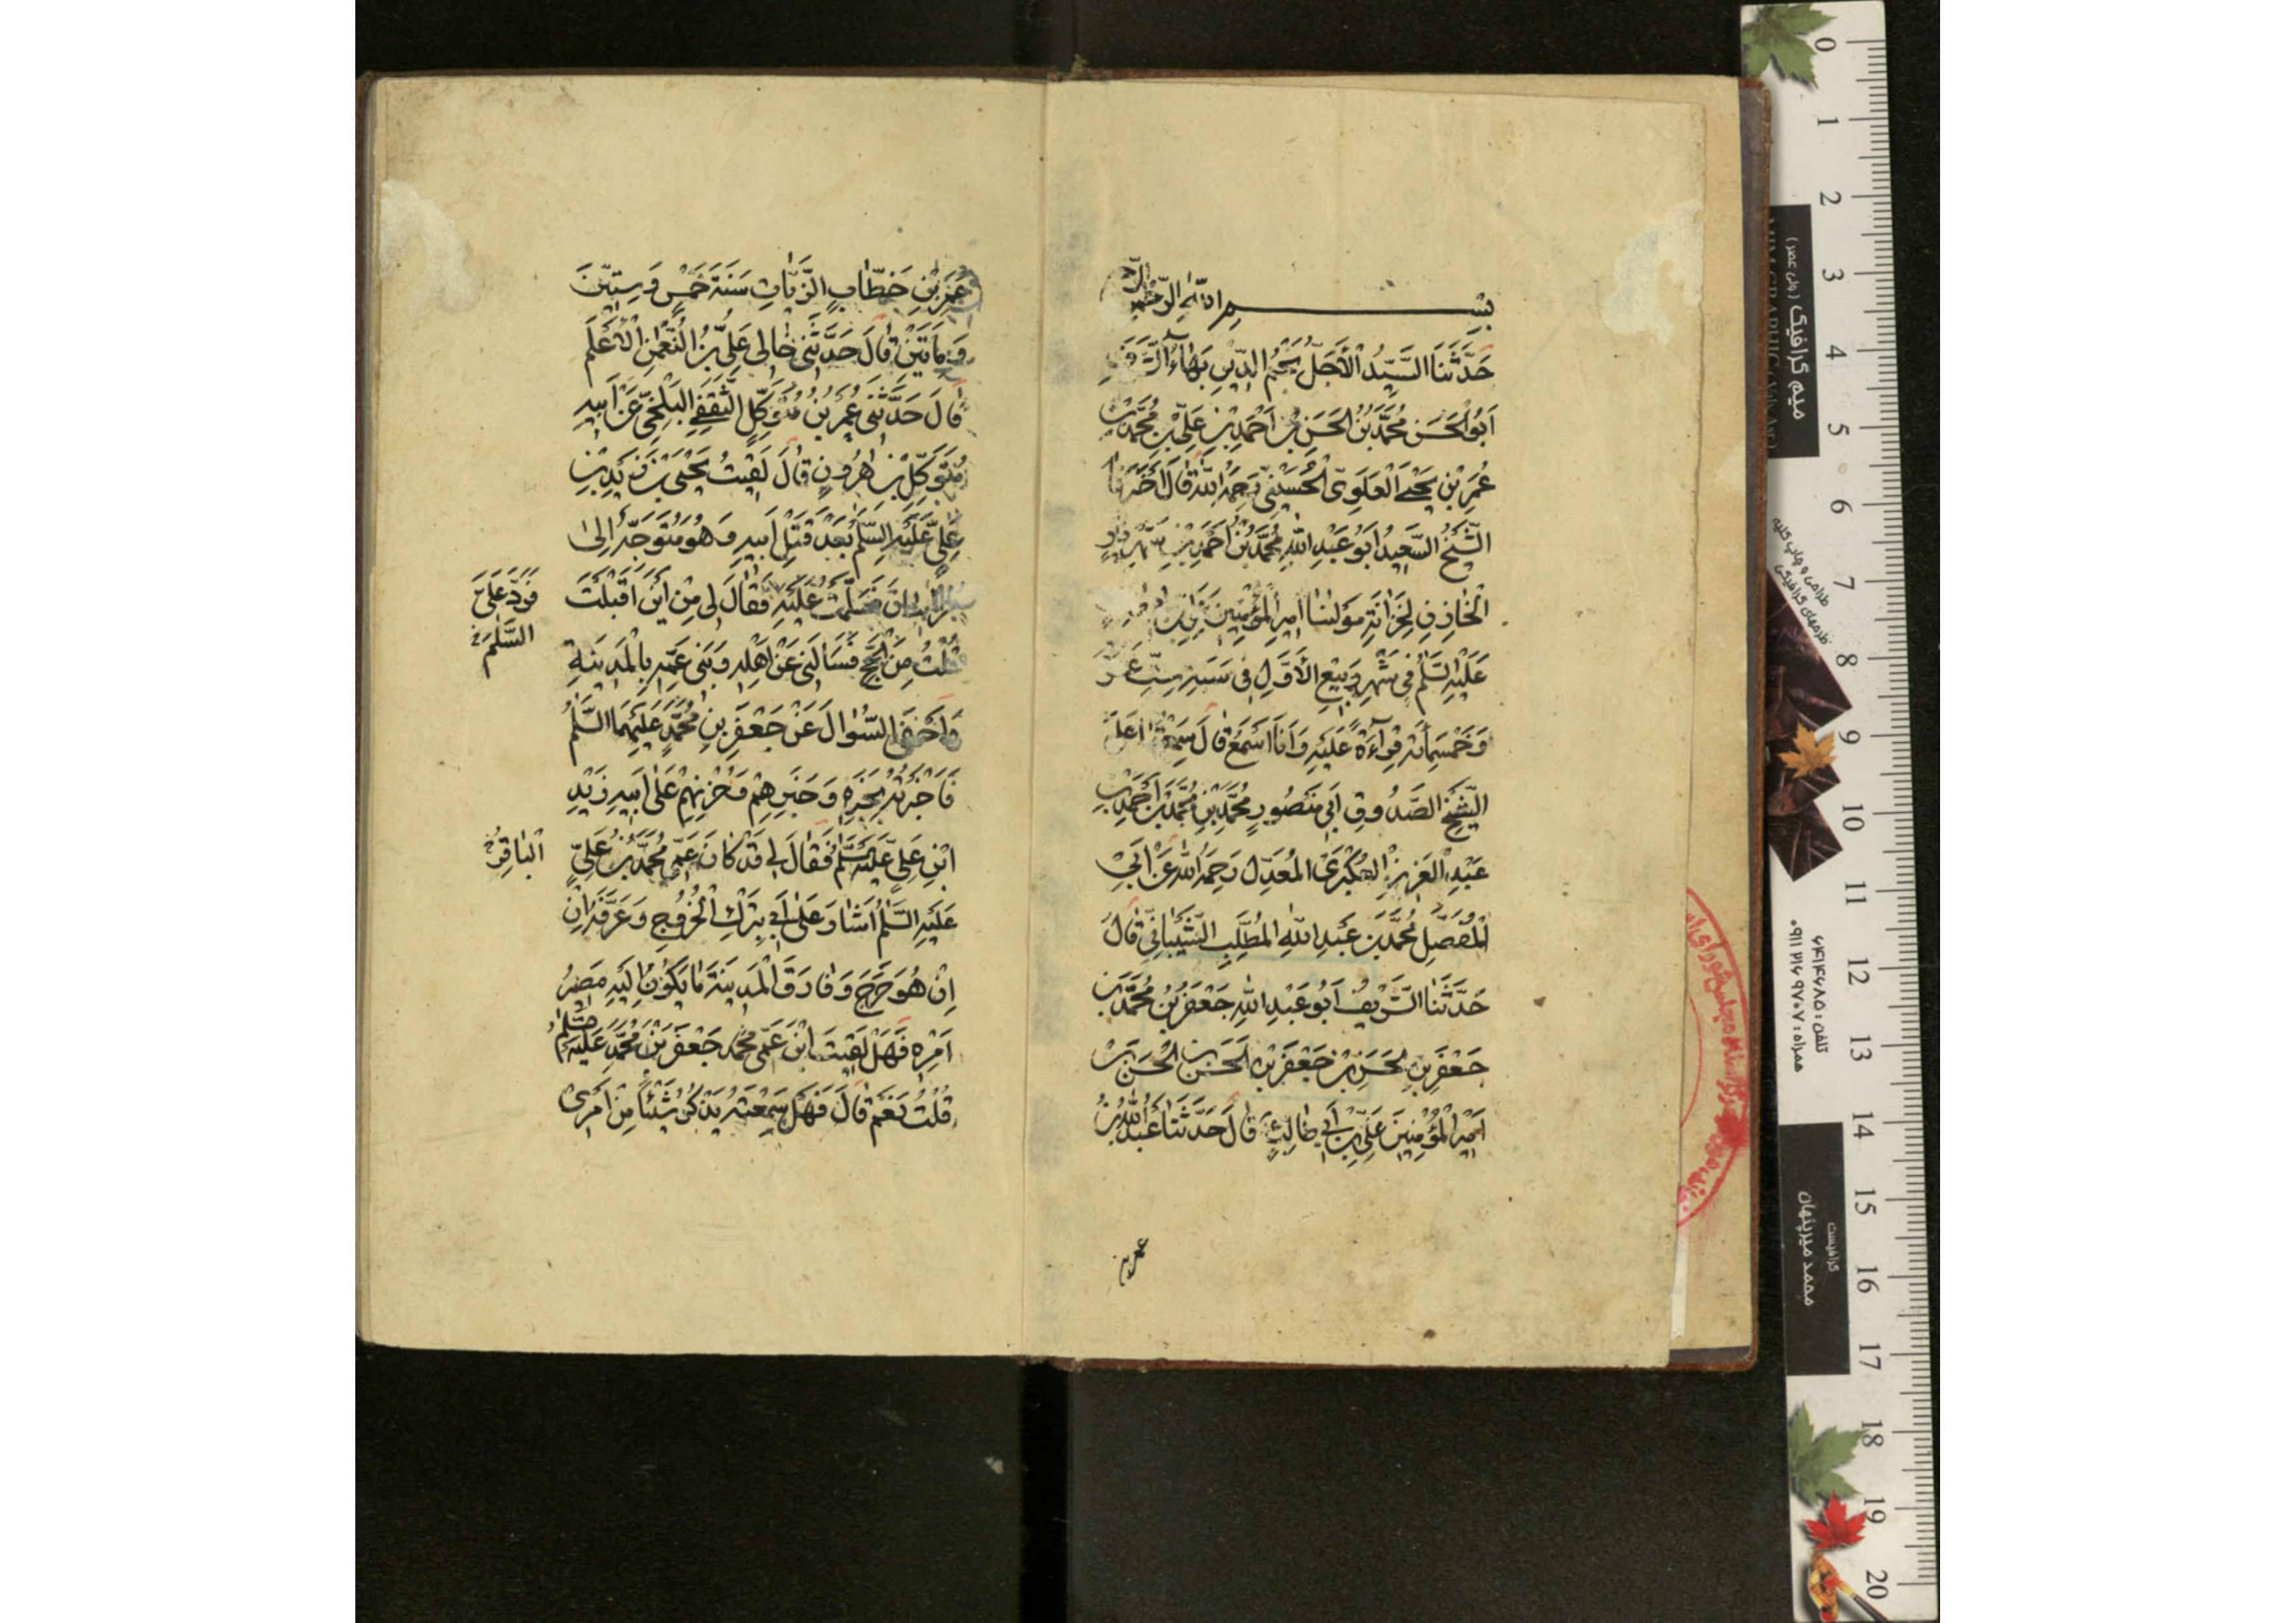 بِسْمِ اللهِ الرَّحْمٰنِ
حَدَّثَنَا السَّيِّدُ الْأَجَلُّ نَجْمُ الدِّينِ بَهَاءُ الشَّرَفِ
أَبُو الْحَسَنِ مُحَمَّدُ بْنُ الْحَسَنِ بْنِ أَحْمَدَ بْنِ عَلِيِّ بْنِ مُحَمَّدِ بْنِ
عُمَرَ بْنِ يَحْيَى الْعَلَوِيُّ الْحُسَيْنِيُّ رَحِمَهُ اللهُ قَالَ أَخْبَرَنَا
الشَّيْخُ السَّعِيدُ أَبُو عَبْدِ اللهِ مُحَمَّدُ بْنُ أَحْمَدَ بْنِ شَهْرِيَارَ
الْخَازِنُ لِخِزَانَةِ مَوْلٰنَا أَمِيرِ الْمُؤْمِنِينَ عَلِيِّ بْنِ
عَلَيْهِ السَّلٰمُ فِي شَهْرِ رَبِيعِ الْأَوَّلِ فِي سَنَةِ سِتَّ عَشْرَ
وَخَمْسِمِائَةٍ قِرَاءَةً عَلَيْهِ وَأَنَا أَسْمَعُ قَالَ سَمِعْتُهَا عَلَى
الشَّيْخِ الصَّدُوقِ أَبِي مَنْصُورٍ مُحَمَّدِ بْنِ مُحَمَّدِ بْنِ أَحْمَدَ بْنِ
عَبْدِ الْعَزِيزِ الْعُكْبَرِيِّ الْمُعَدِّلِ رَحِمَهُ اللهُ عَنْ أَبِي
الْمُفَضَّلِ مُحَمَّدِ بْنِ عَبْدِ اللهِ الْمُطَّلِبِ الشَّيْبَانِيِّ قَالَ
حَدَّثَنَا الشَّرِيفُ أَبُو عَبْدِ اللهِ جَعْفَرُ بْنُ مُحَمَّدِ بْنِ
جَعْفَرِ بْنِ الْحَسَنِ بْنِ جَعْفَرِ بْنِ الْحَسَنِ بْنِ الْحَسَنِ بْنِ
أَمِيرِ الْمُؤْمِنِينَ عَلِيِّ بْنِ أَبِي طَالِبٍ قَالَ حَدَّثَنَا عَبْدُ اللهِ بْنُ
عمر بن
عُمَرَ بْنِ خَطَّابٍ الزَّيَّاتُ سَنَةَ خَمْسٍ وَسِتِّينَ
وَمِائَتَيْنِ قَالَ حَدَّثَنِي خَالِي عَلِيُّ بْنُ النُّعْمٰنِ الْأَعْلَمُ
قَالَ حَدَّثَنِي عُمَيْرُ بْنُ مُتَوَكِّلٍ الثَّقَفِيُّ الْبَلْخِيُّ عَنْ أَبِيهِ
مُتَوَكِّلِ بْنِ هٰرُونَ قَالَ لَقِيتُ يَحْيَى بْنَ زَيْدِ بْنِ
عَلِيٍّ عَلَيْهِ السَّلٰمُ بَعْدَ قَتْلِ أَبِيهِ وَهُوَ مُتَوَجِّهٌ إِلَى
خُرَاسَانَ فَسَلَّمْتُ عَلَيْهِ فَقَالَ لِي مِنْ أَيْنَ أَقْبَلْتَ
فَرَدَّ عَلَيَّ
السَّلٰمَ
قُلْتُ مِنَ الْحَجِّ فَسَأَلَنِي عَنْ أَهْلِهِ وَبَنِي عَمِّهِ بِالْمَدِينَةِ
وَأَحْفَى السُّؤَالَ عَنْ جَعْفَرِ بْنِ مُحَمَّدٍ عَلَيْهِمَا السَّلٰمُ
فَأَخْبَرْتُهُ بِخَبَرِهِ وَخَبَرِهِمْ وَحُزْنِهِمْ عَلَى أَبِيهِ زَيْدِ
ابْنِ عَلِيٍّ عَلَيْهِ السَّلٰمُ فَقَالَ لِي قَدْ كَانَ عَمِّي مُحَمَّدُ بْنُ عَلِيٍّ
الْبَاقِرُ
عَلَيْهِ السَّلٰمُ أَشَارَ عَلَى أَبِي بِتَرْكِ الْخُرُوجِ وَعَرَّفَهُ إِنْ
إِنْ هُوَ خَرَجَ وَفَارَقَ الْمَدِينَةَ مَا يَكُونُ إِلَيْهِ مَصِيرُ
أَمْرِهِ فَهَلْ لَقِيتَ ابْنَ عَمِّي جَعْفَرَ بْنَ مُحَمَّدٍ عَلَيْهِ السَّلٰمُ
قُلْتُ نَعَمْ قَالَ فَهَلْ سَمِعْتَهُ يَذْكُرُ شَيْئًا مِنْ أَمْرِي
0
1
2
3
4
5
6
7
8
9
10
11
12
13
14
15
16
17
18
19
20
میم گرافیک (ولی عصر)
طراحی و چاپ کلیه
طرحهای گرافیکی
تلفن: ۶۴۱۴۶۸۵
همراه: ۰۹۱۱۲۱۶۹۷۰۷
گرافیست
محمد میرپنهان